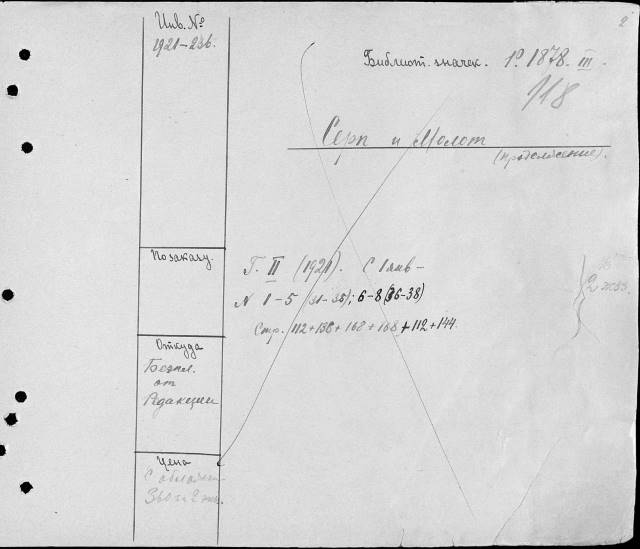 2
Инв. №
1921–23б.
Библиот. значек. Р. 1878. III.
118
Серп и Молот
(продолжение).
По заказу.
Г. II (1921). С 1 янв –
N 1–5 (31–35); 6–8 (36–38)
2 экз.
Стр. 112+138+168+168+112+144.
Откуда
Безпл.
от
Редакции
Цена
С обложк
360 за 2 экз.